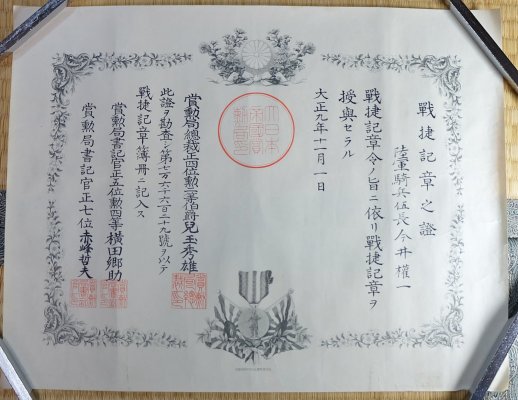 戰捷記章之證
陸軍騎兵伍長今井權一
戰捷記章令ノ旨ニ依リ戰捷記章ヲ
授與セラル
大正九年十一月一日
大日本
帝國賞
勲局印
賞勲局總裁正四位勲二等伯爵兒玉秀雄
此證ヲ勘査シ第七万六千六百二十九號ヲ以テ
戰捷記章簿冊ニ記入ス
賞勲局書記官正五位勲四等横田郷助
賞勲局書記官正七位赤峰哲夫